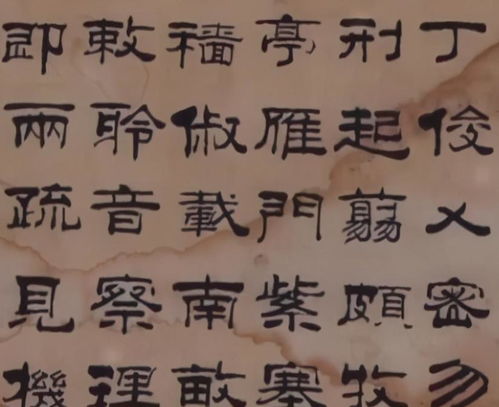 丁俊乂密勿
刑起翦頗牧
亭雁門紫塞
穡俶載南畝
敕聆音察理
即兩疏見機